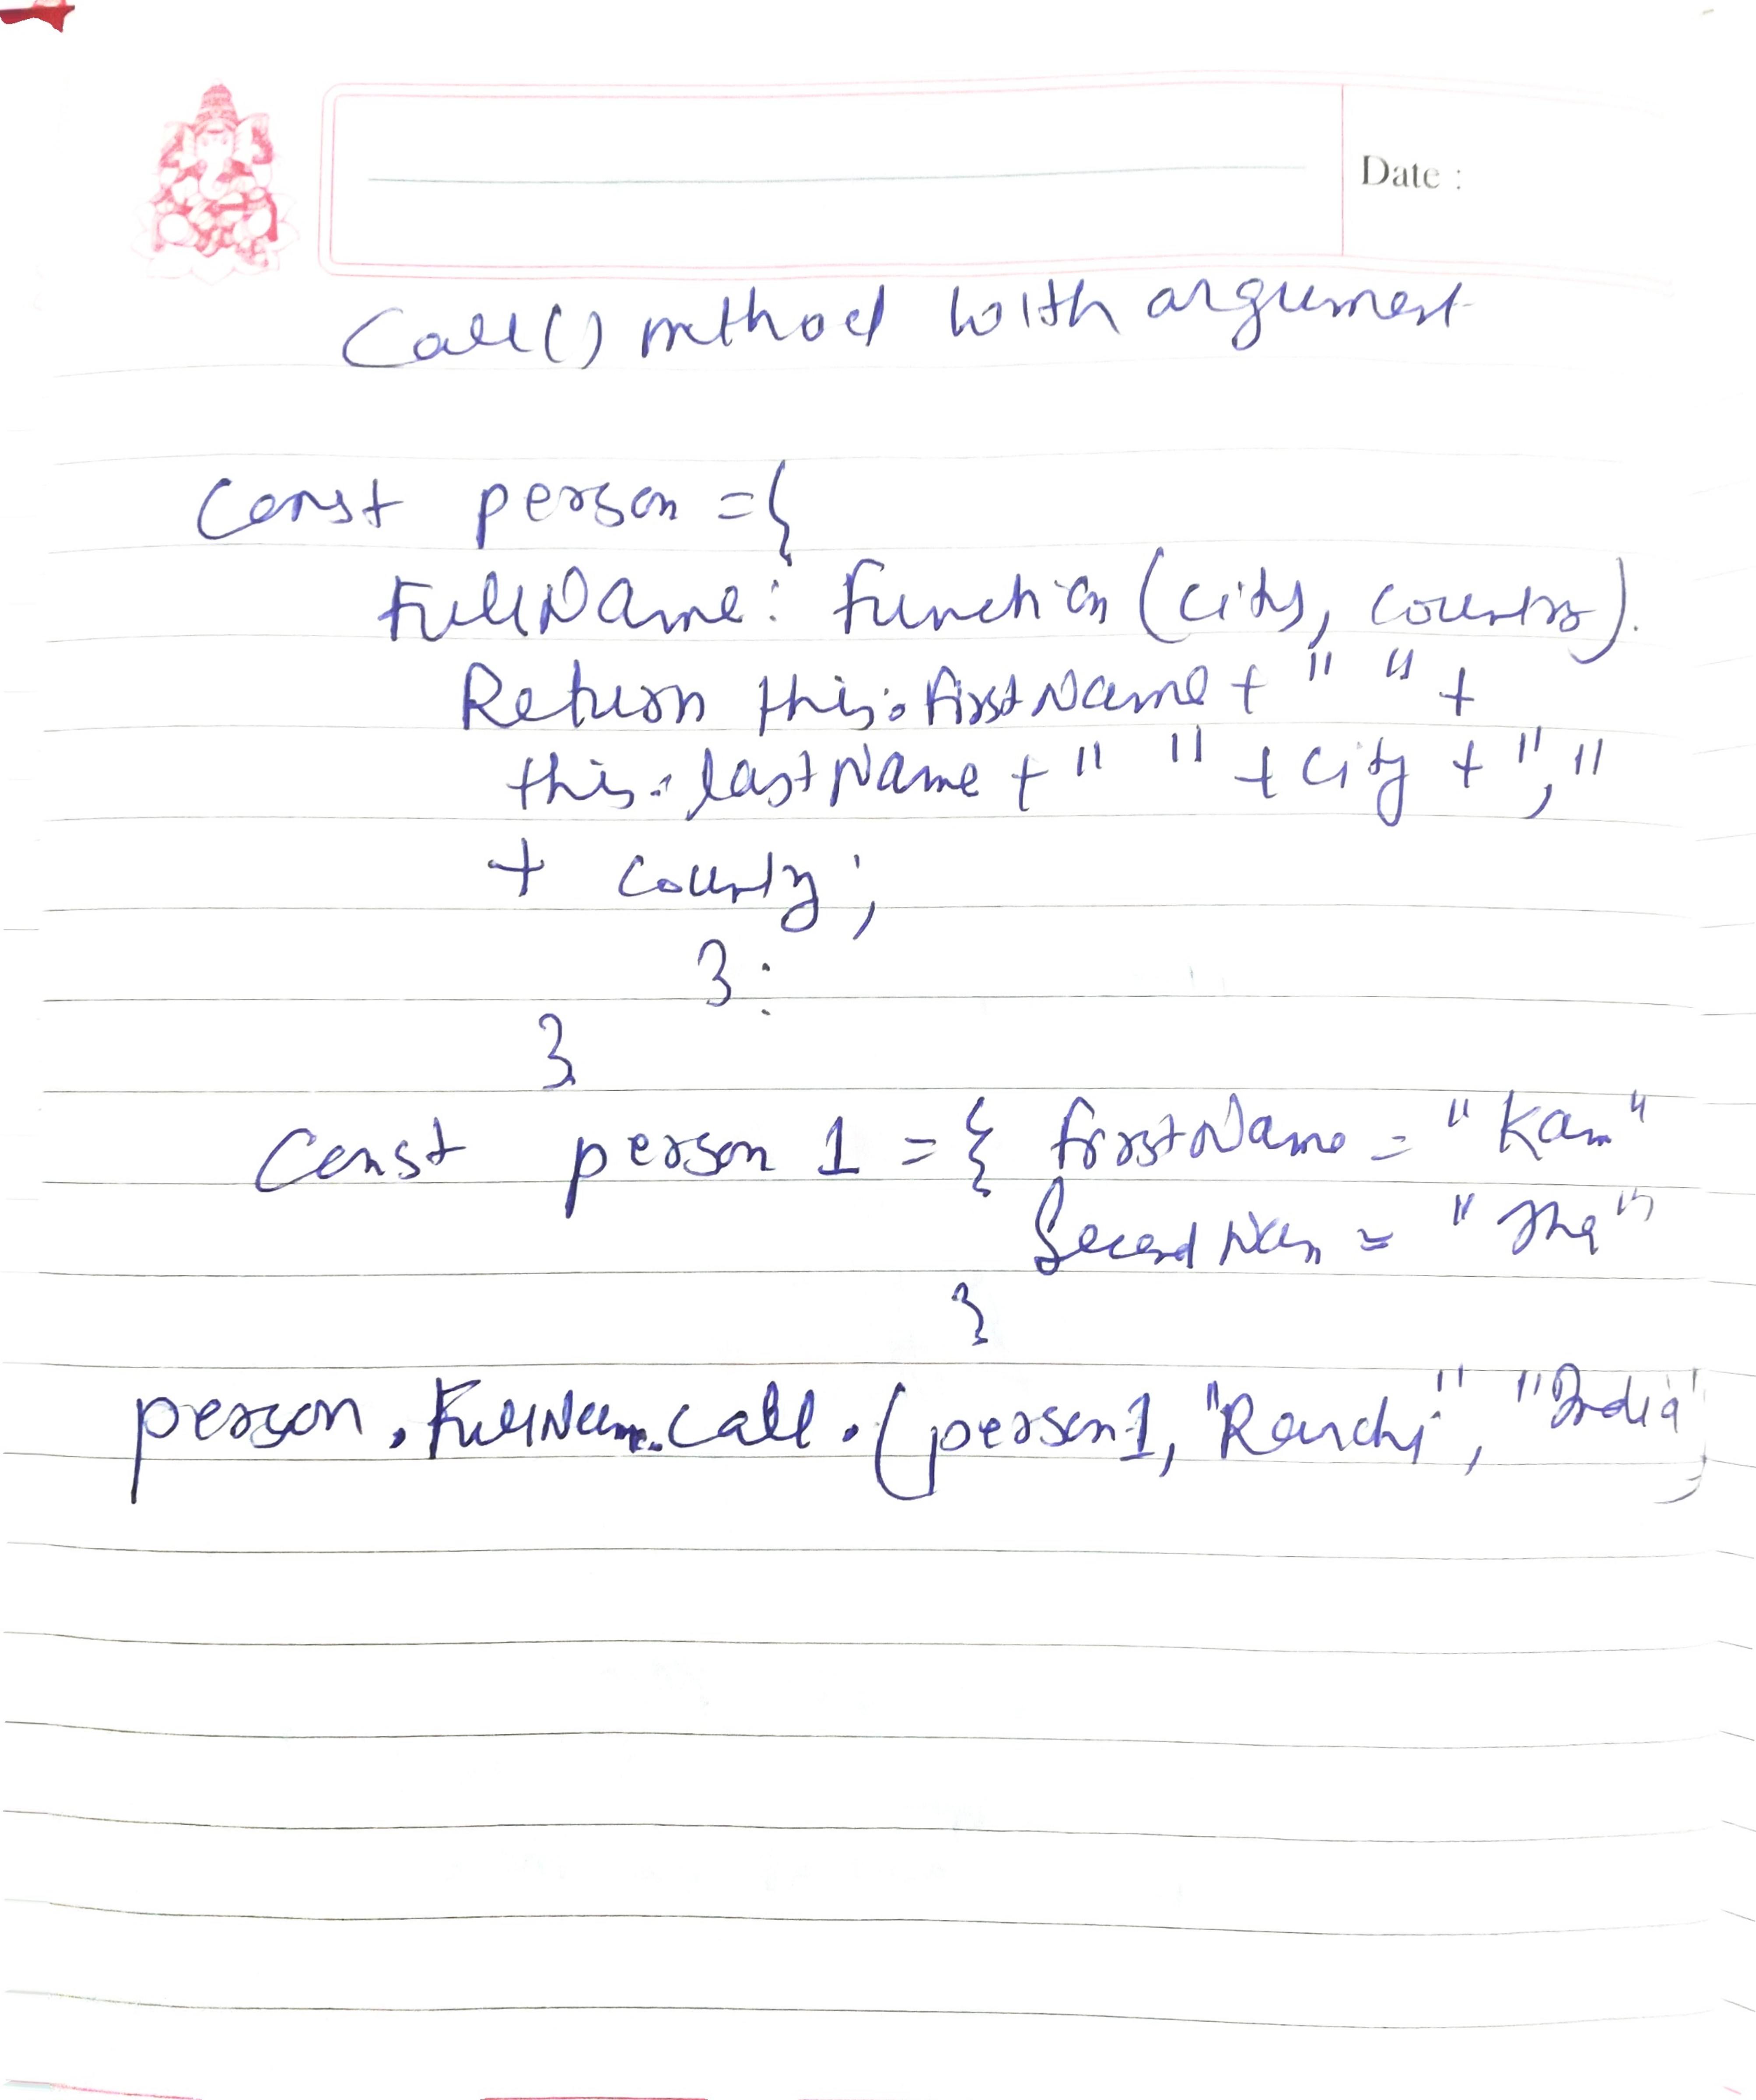 Date :
Call() method with argument
Const person = {
FullName: Function (city, country).
Return this.firstName + " " +
this.lastName + " " + city + ","
+ country;
}:
}
Const person 1 = { firstName = "Kam"
Second Nam = "Jha"
}
person.FullNam.call.(person1, "Ranchi", "India")